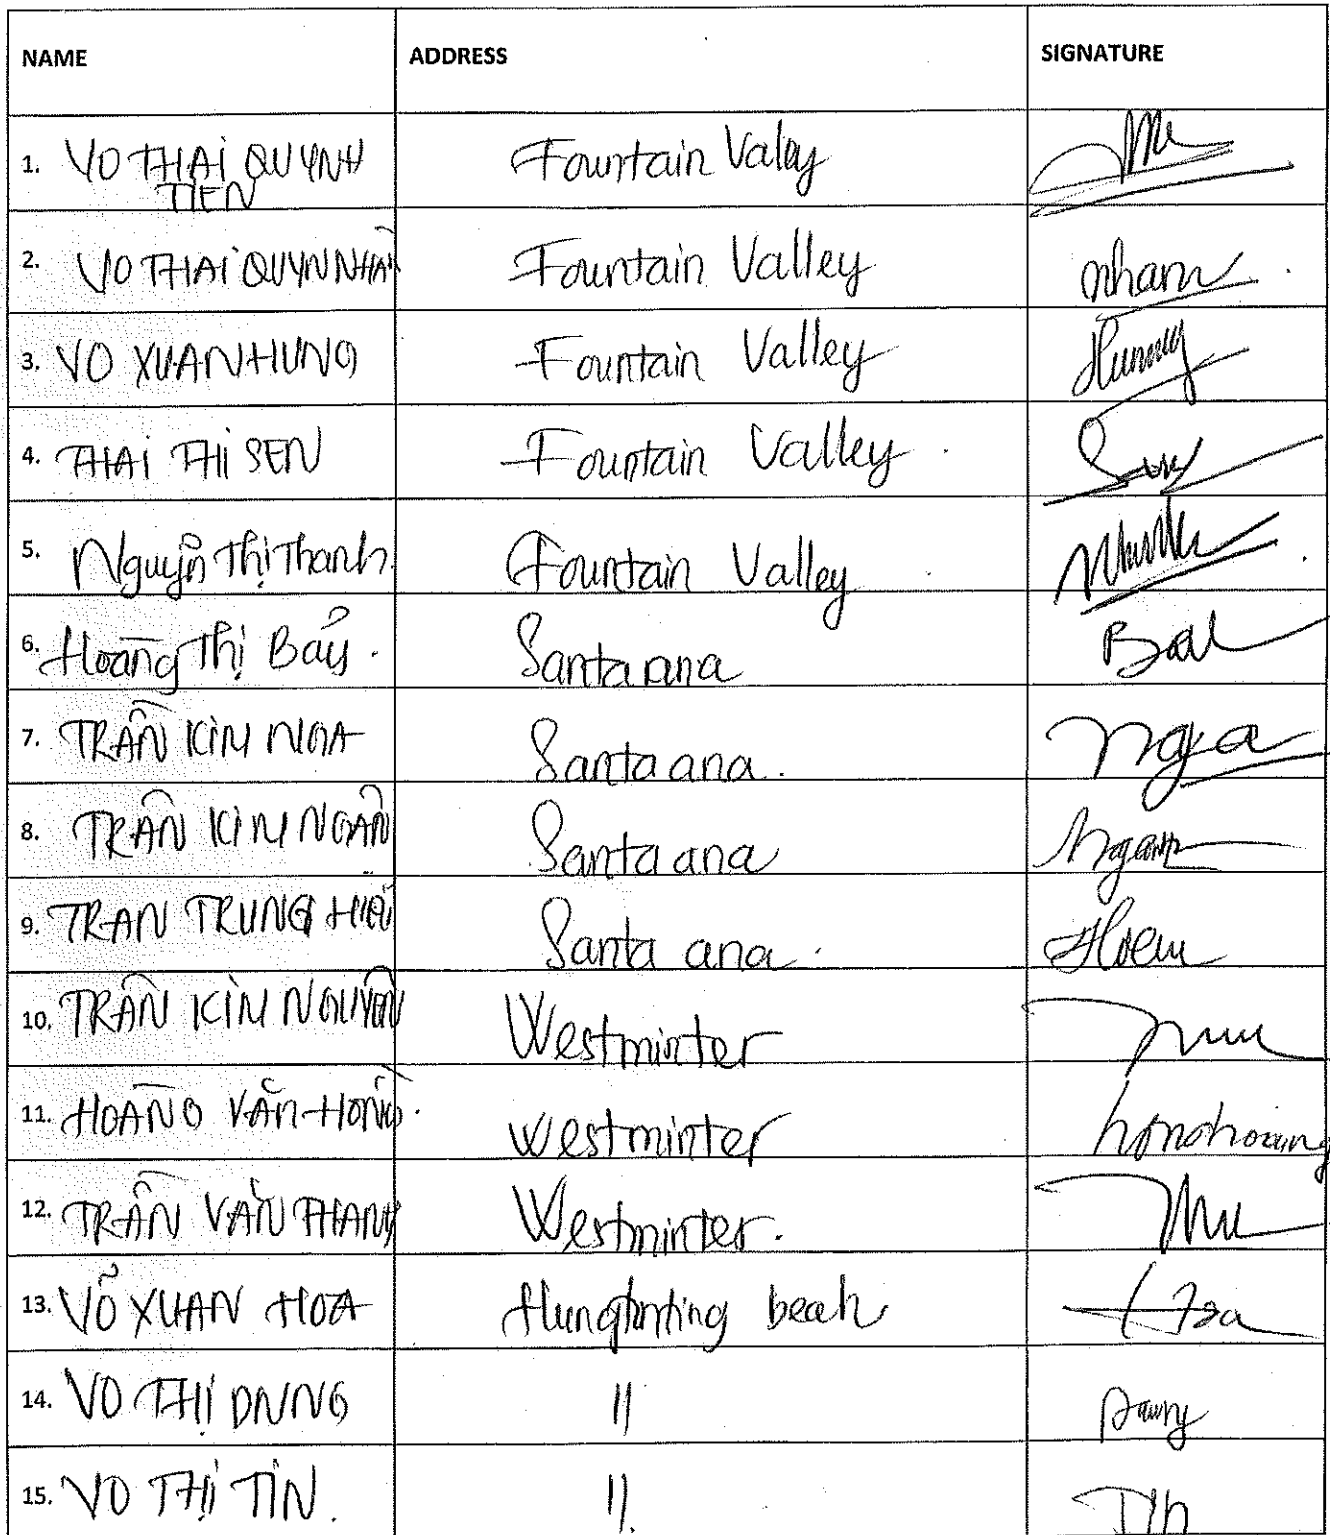 NAME ADDRESS SIGNATURE
1. VO THAI QUYNH Fountain Valey
TIEN
2. VO THAI QUYNNHAN Fountain Valley nham
3. VO XUAN HUNG Fountain Valley Hung
4. THAI THI SEN Fountain Valley
5. Nguyễn Thị Thanh Fountain Valley
6. Hoàng Thị Bảy. Santa ana
7. TRẦN KIM NGA Santa ana. nga
8. TRẦN KIM NGÂN Santa ana Ngan
9. TRAN TRUNG HIẾU Santa ana.
10. TRẦN KIM NGUYÊN Westminter
11. HOÀNG VĂN HỒNG. Westminter
12. TRẦN VĂN THANH Westminter.
13. VÕ XUAN HOA Hungtinting beah Hoa
14. VO THỊ DUNG 11
15. VO THỊ TÍN. 11.